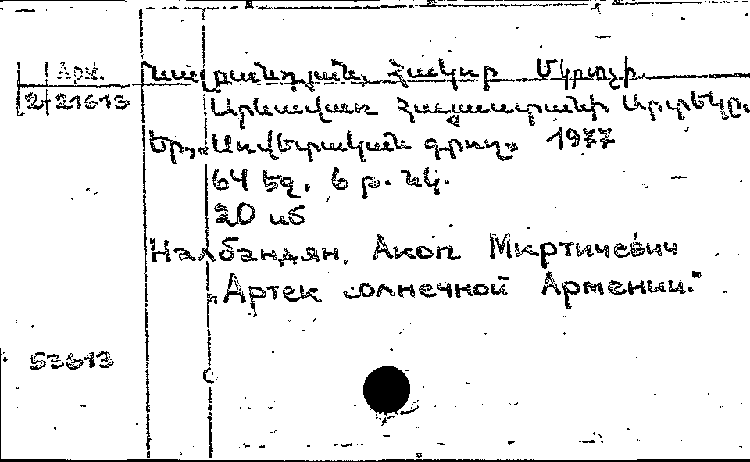 Арм. Նալբանդյան, Հակոբ Մկրտչի
2-21613 Արևավառ Հայաստանի Արտեկը
Եր., „Սովետական գրող„ 1977
64 եզ. 6 թ. նկ.
20 կ
Налбандян, Акоп Мкртичевич
„Артек солнечной Армении."
53613